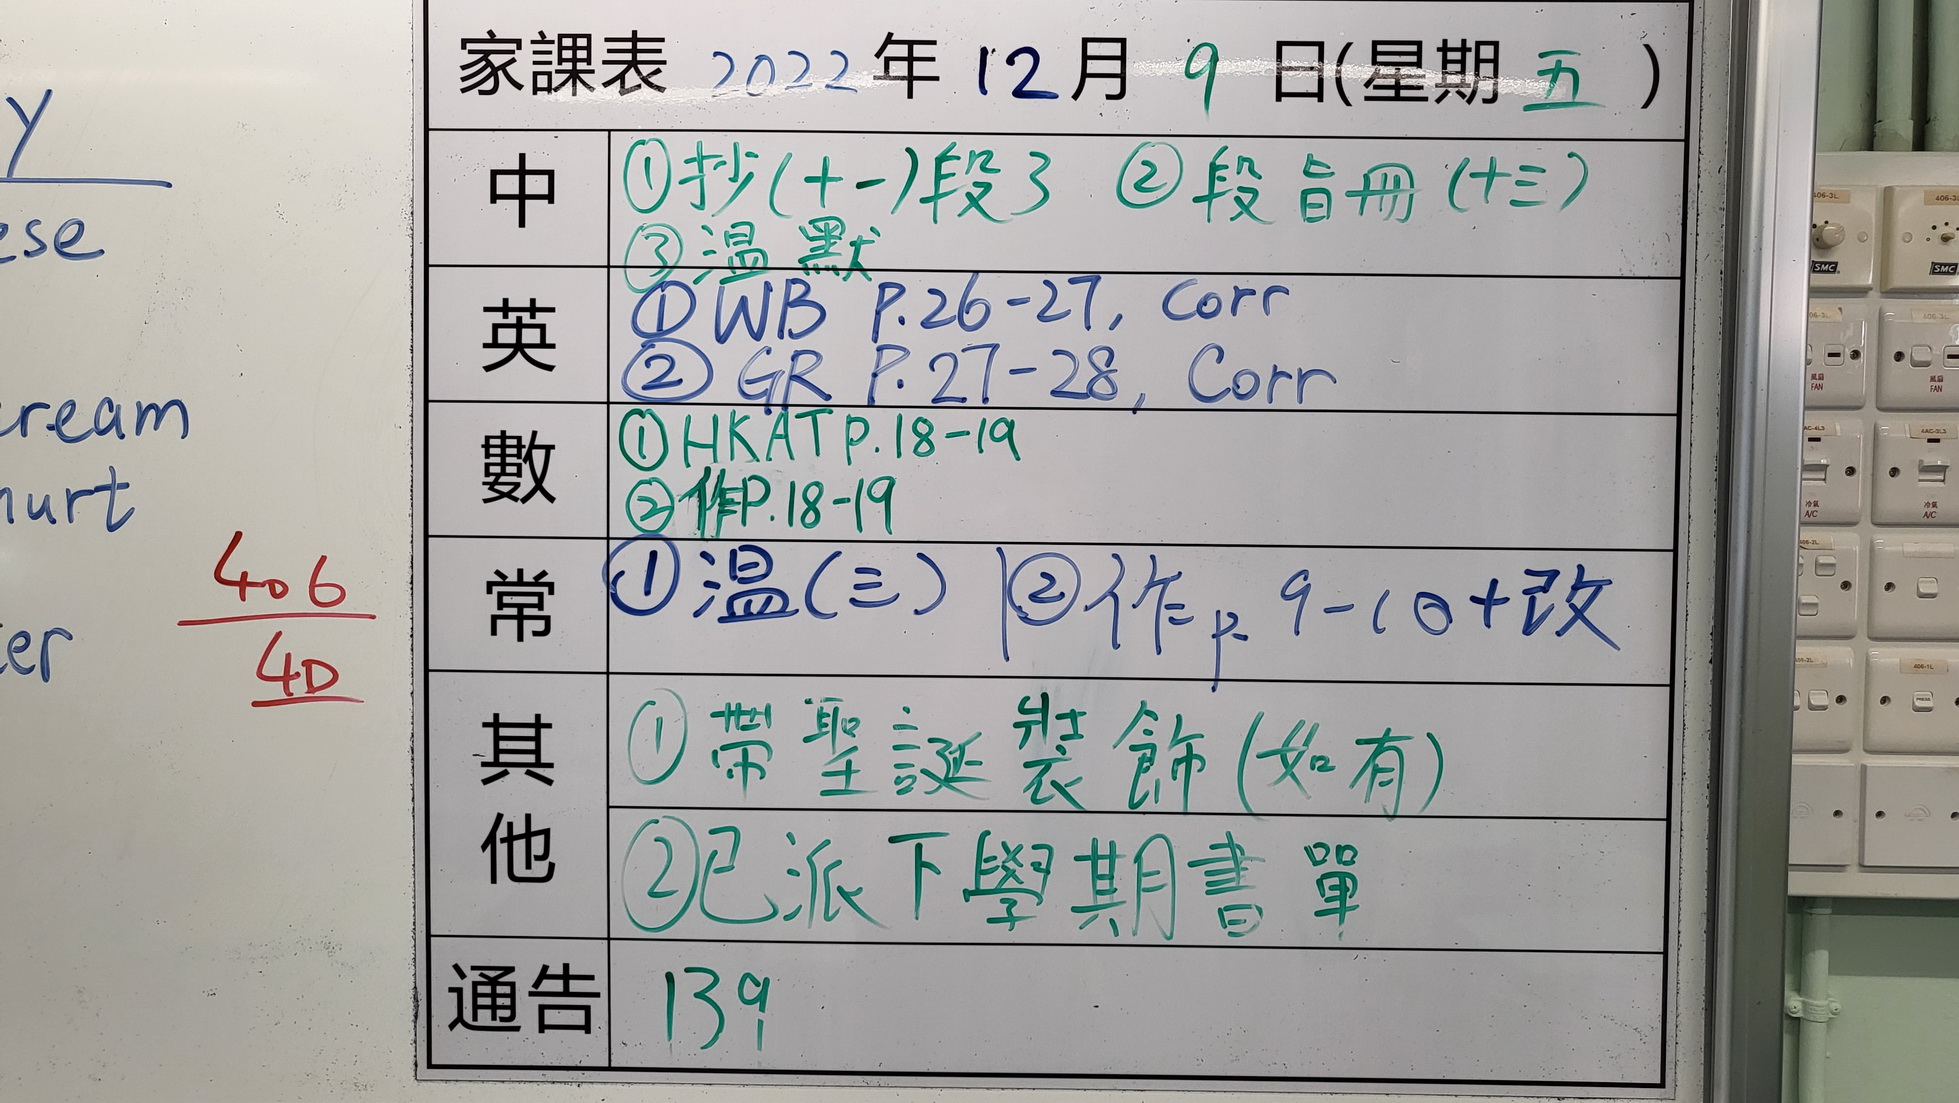 家課表 2022年 12月 9日(星期五)
中
①抄(十一)段3 ②段旨冊(十三)
③溫默
英
①WB P.26-27, Corr
②GR P.27-28, Corr
數
①HKAT P.18-19
②作P.18-19
常
①溫(三) | ②作p. 9-10+改
其他
①帶聖誕裝飾(如有)
②已派下學期書單
通告
139
y
ese
cream
hurt
er
406
4D
406-3L
SMC
SMC
風扇
FAN
風扇
FAN
AC-4L3
4AC-3L3
冷氣
A/C
冷氣
A/C
406-1L
PRESS